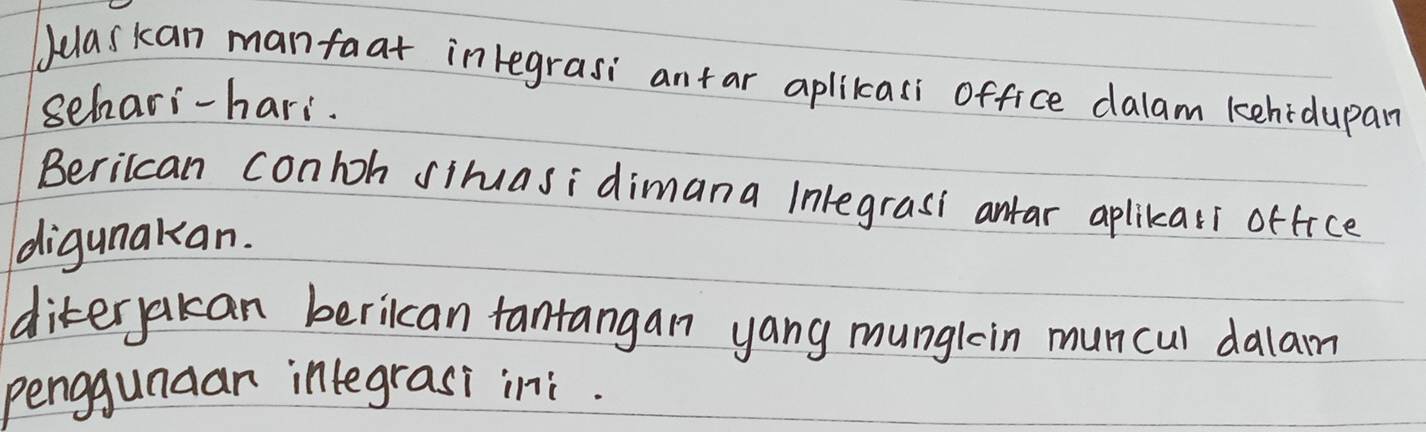 Jelaskan manfaat integrasi antar aplikasi office dalam kehidupan
sehari-hari.
Berikan contoh situasi dimana Integrasi antar aplikasi office
digunakan.
dikerjakan berikan tantangan yang mungkin muncul dalam
penggunaan integrasi ini.